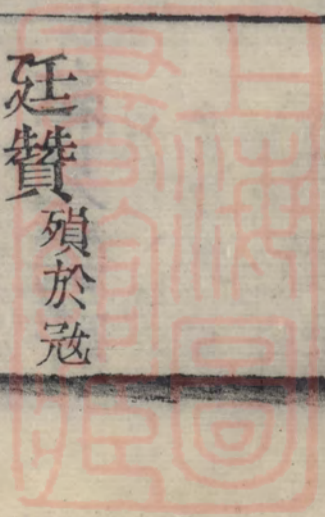 廷贊
殞於冦
上海圖
書館藏